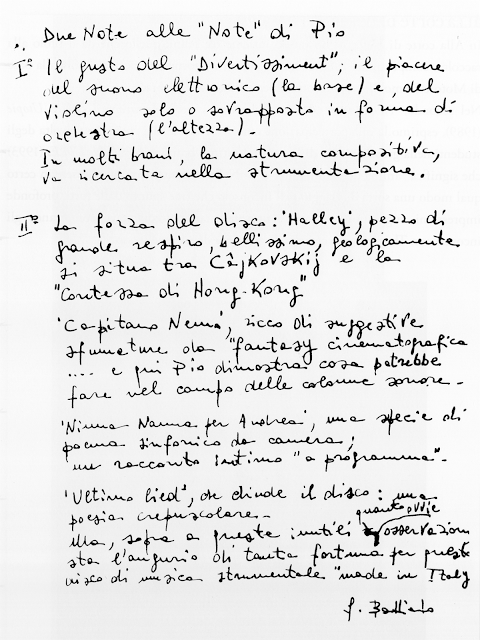 Due Note alle "Note" di Pio
I° Il gusto del "Divertissiment"; il piacere
del suono elettronico (la base) e, del
violino solo o sovrapposto in forma di
orchestra (l'altezza).
In molti brani, la natura compositiva,
va ricercata nella strumentazione.
II° La forza del disco: 'Halley', pezzo di
grande respiro, bellissimo, geologicamente
si situa tra Cajkovskij e la
"Contessa di Hong-Kong"
'Capitano Nemo', ricco di suggestive
sfumature da "fantasy cinematografica
.... e qui Pio dimostra cosa potrebbe
fare nel campo delle colonne sonore.
'Ninna Nanna per Andrea', una specie di
poema sinfonico da camera;
un racconto intimo "a programma".
'Ultimo lied', che chiude il disco: una
poesia crepuscolare.
Ma, sopra a queste inutili quanto ovvie osservazioni
sta l'augurio di tanta fortuna per questo
disco di musica strumentale "made in Italy
F. Battiato